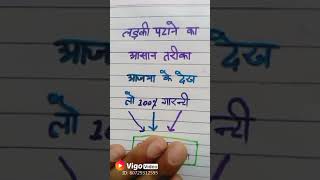 लड़की पटाने का
आसान तरीका
आजमा के देख
लो 100% गारन्टी
Vigo Video
ID: 80729312595